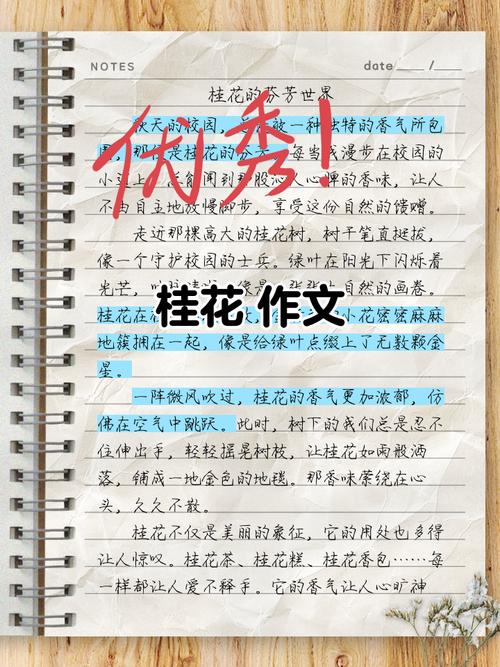 NOTES
date ____ / ____
桂花的芬芳世界
秋天的校园,被一种独特的香气所包
围,那是桂花的芬芳。每当我漫步在校园的
小道上,都能闻到那股沁人心脾的香味,让人
不由自主地放慢脚步,享受这份自然的馈赠。
走近那棵高大的桂花树,树干笔直挺拔,
像一个守护校园的士兵。绿叶在阳光下闪烁着
光芒,自然的画卷。
桂花在小花密密麻麻
地簇拥在一起,像是给绿叶点缀上了无数颗金
星。
一阵微风吹过,桂花的香气更加浓郁,仿
佛在空气中跳跃。此时,树下的我们总是忍不
住伸出手,轻轻摇晃树枝,让桂花如雨般洒
落,铺成一地金色的地毯。那香味萦绕在心
头,久久不散。
桂花不仅是美丽的象征,它的用处也多得
让人惊叹。桂花茶、桂花糕、桂花香包……每
一样都让人爱不释手。它的香气让人心旷神
优秀!
桂花 作文